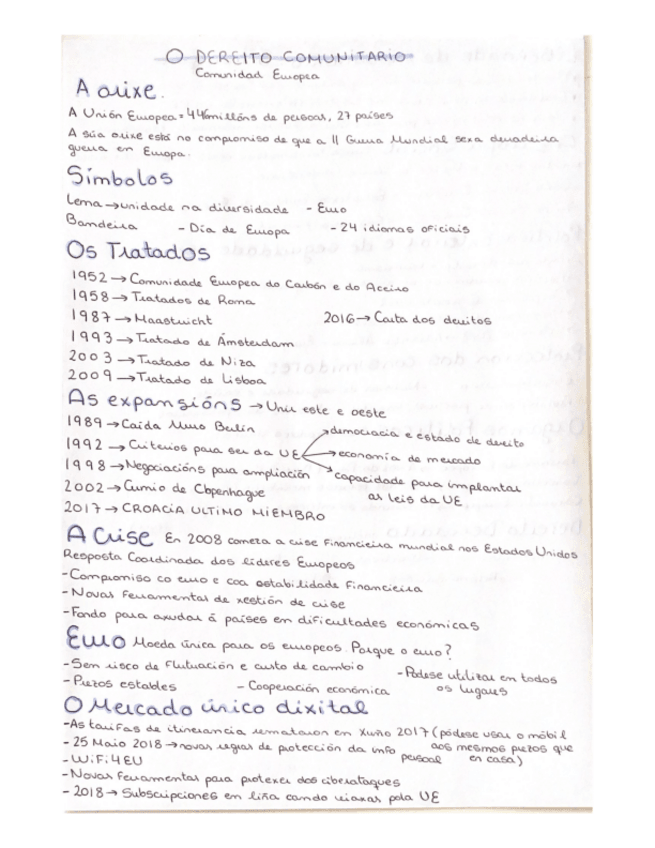 O DEREITO COMUNITARIO
Comunidad Europea
A orixe.
A Unión Europea = 446millóns de persoas, 27 países
A súa orixe está no compromiso de que a II Guerra Mundial sexa derradeira
guerra en Europa.
Símbolos
Lema → unidade na diversidade - Euro
Bandeira - Día de Europa - 24 idiomas oficiais
Os Tratados
1952 → Comunidade Europea do Carbón e do Aceiro
1958 → Tratados de Roma
1987 → Maastricht 2016 → Carta dos dereitos
1993 → Tratado de Ámsterdam
2003 → Tratado de Niza
2009 → Tratado de Lisboa
As expansións → Unir este e oeste
1989 → Caída Muro Berlín → democracia e estado de dereito
1992 → Criterios para ser da UE → economía de mercado
1998 → Negociacións para ampliación → capacidade para implantar
as leis da UE
2002 → Cumio de Copenhague
2017 → CROACIA ULTIMO MIEMBRO
A Crise En 2008 comeza a crise financieira mundial nos Estados Unidos
Resposta Coordinada dos líderes Europeos
- Compromiso co euro e coa estabilidade financieira
- Novas ferramentas de xestión de crise
- Fondo para axudar á países en dificultades económicas
Euro Moeda única para os europeos. Porque o euro?
- Sen risco de flutuación e custo de cambio - Pódese utilizar en todos
os lugares
- Prezos estables - Cooperación económica
O Mercado único dixital
- As tarifas de itinerancia remataron en Xuño 2017 (pódese usar o móbil
aos mesmos prezos que
en casa)
- 25 Maio 2018 → novas regras de protección da info
persoal
- WiFi4EU
- Novas ferramentas para protexer dos ciberataques
- 2018 → Subscripciones en liña cando viaxas pola UE